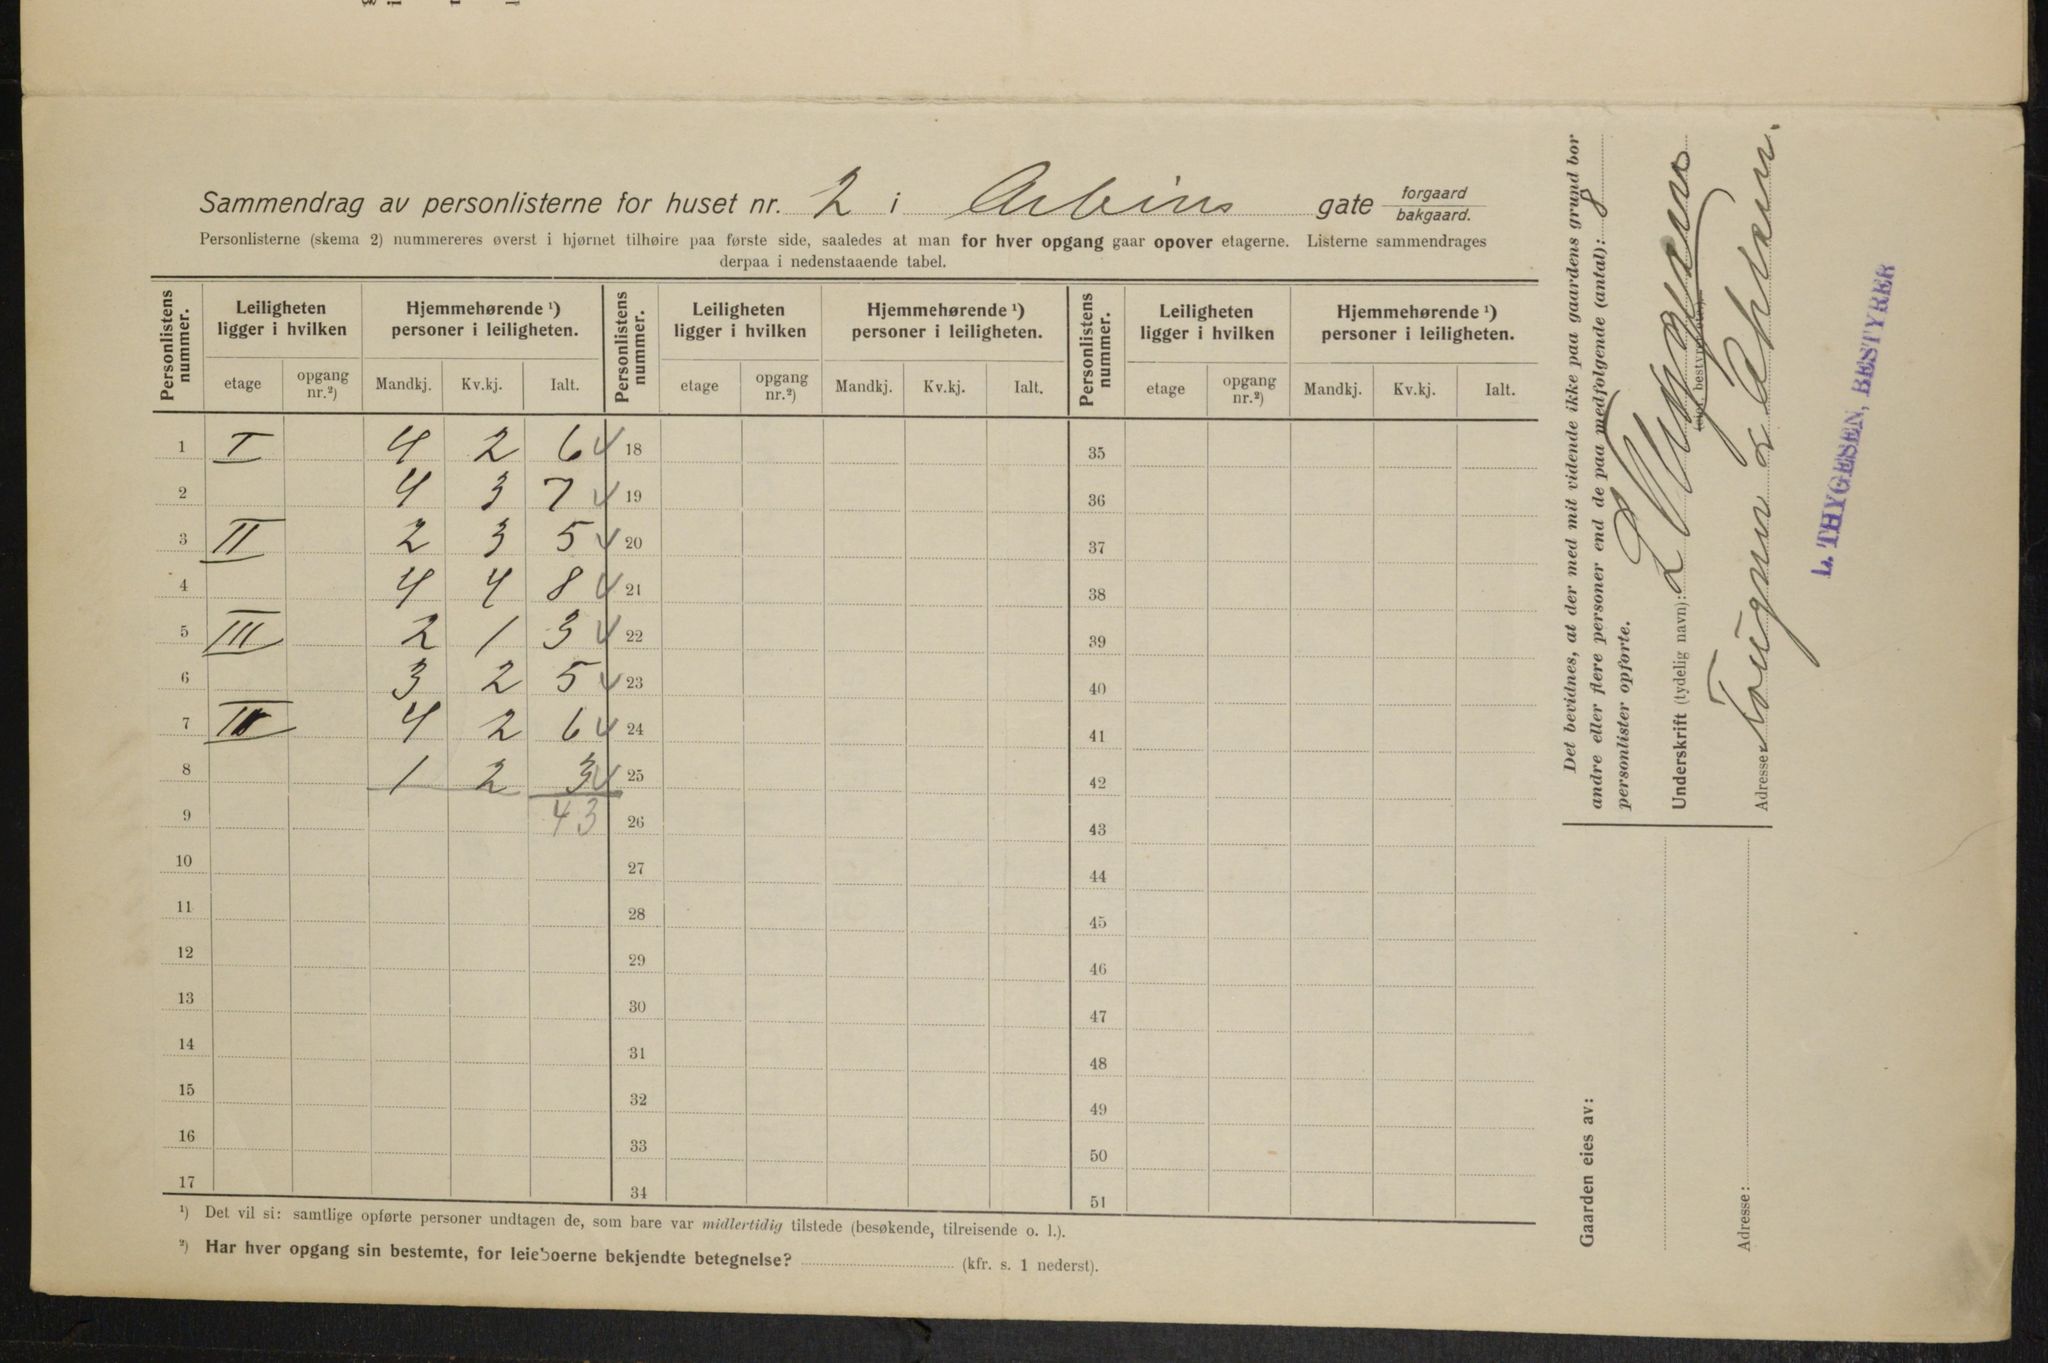 Sammendrag av personlisterne for huset nr. 2 i Arbins gate forgaard bakgaard.
Personlisterne (skema 2) nummereres øverst i hjørnet tilhøire paa første side, saaledes at man for hver opgang gaar opover etagerne. Listerne sammendrages
derpaa i nedenstaaende tabel.
Personlistens nummer. Leiligheten ligger i hvilken Hjemmehørende ¹) personer i leiligheten. Personlistens nummer. Leiligheten ligger i hvilken Hjemmehørende ¹) personer i leiligheten. Personlistens nummer. Leiligheten ligger i hvilken Hjemmehørende ¹) personer i leiligheten.
etage opgang nr.²) Mandkj. Kv.kj. Ialt. etage opgang nr.²) Mandkj. Kv.kj. Ialt. etage opgang nr.²) Mandkj. Kv.kj. Ialt.
1 I 4 2 6 18 35
2 4 3 7 19 36
3 II 2 3 5 20 37
4 4 4 8 21 38
5 III 2 1 3 22 39
6 3 2 5 23 40
7 4 2 6 24 41
8 1 2 3 25 42
9 43 26 43
10 27 44
11 28 45
12 29 46
13 30 47
14 31 48
15 32 49
16 33 50
17 34 51
¹) Det vil si: samtlige opførte personer undtagen de, som bare var midlertidig tilstede (besøkende, tilreisende o. l.).
²) Har hver opgang sin bestemte, for leieboerne bekjendte betegnelse? (kfr. s. 1 nederst).
Det bevidnes, at der med mit vidende ikke paa gaardens grund bor
andre eller flere personer end de paa medfølgende (antal): 8
personlister opførte.
Underskrift (tydelig navn): L Thygesen
(eier, bestyrer etc.).
Adresse:
L. THYGESEN, BESTYRER
Gaarden eies av:
Adresse: